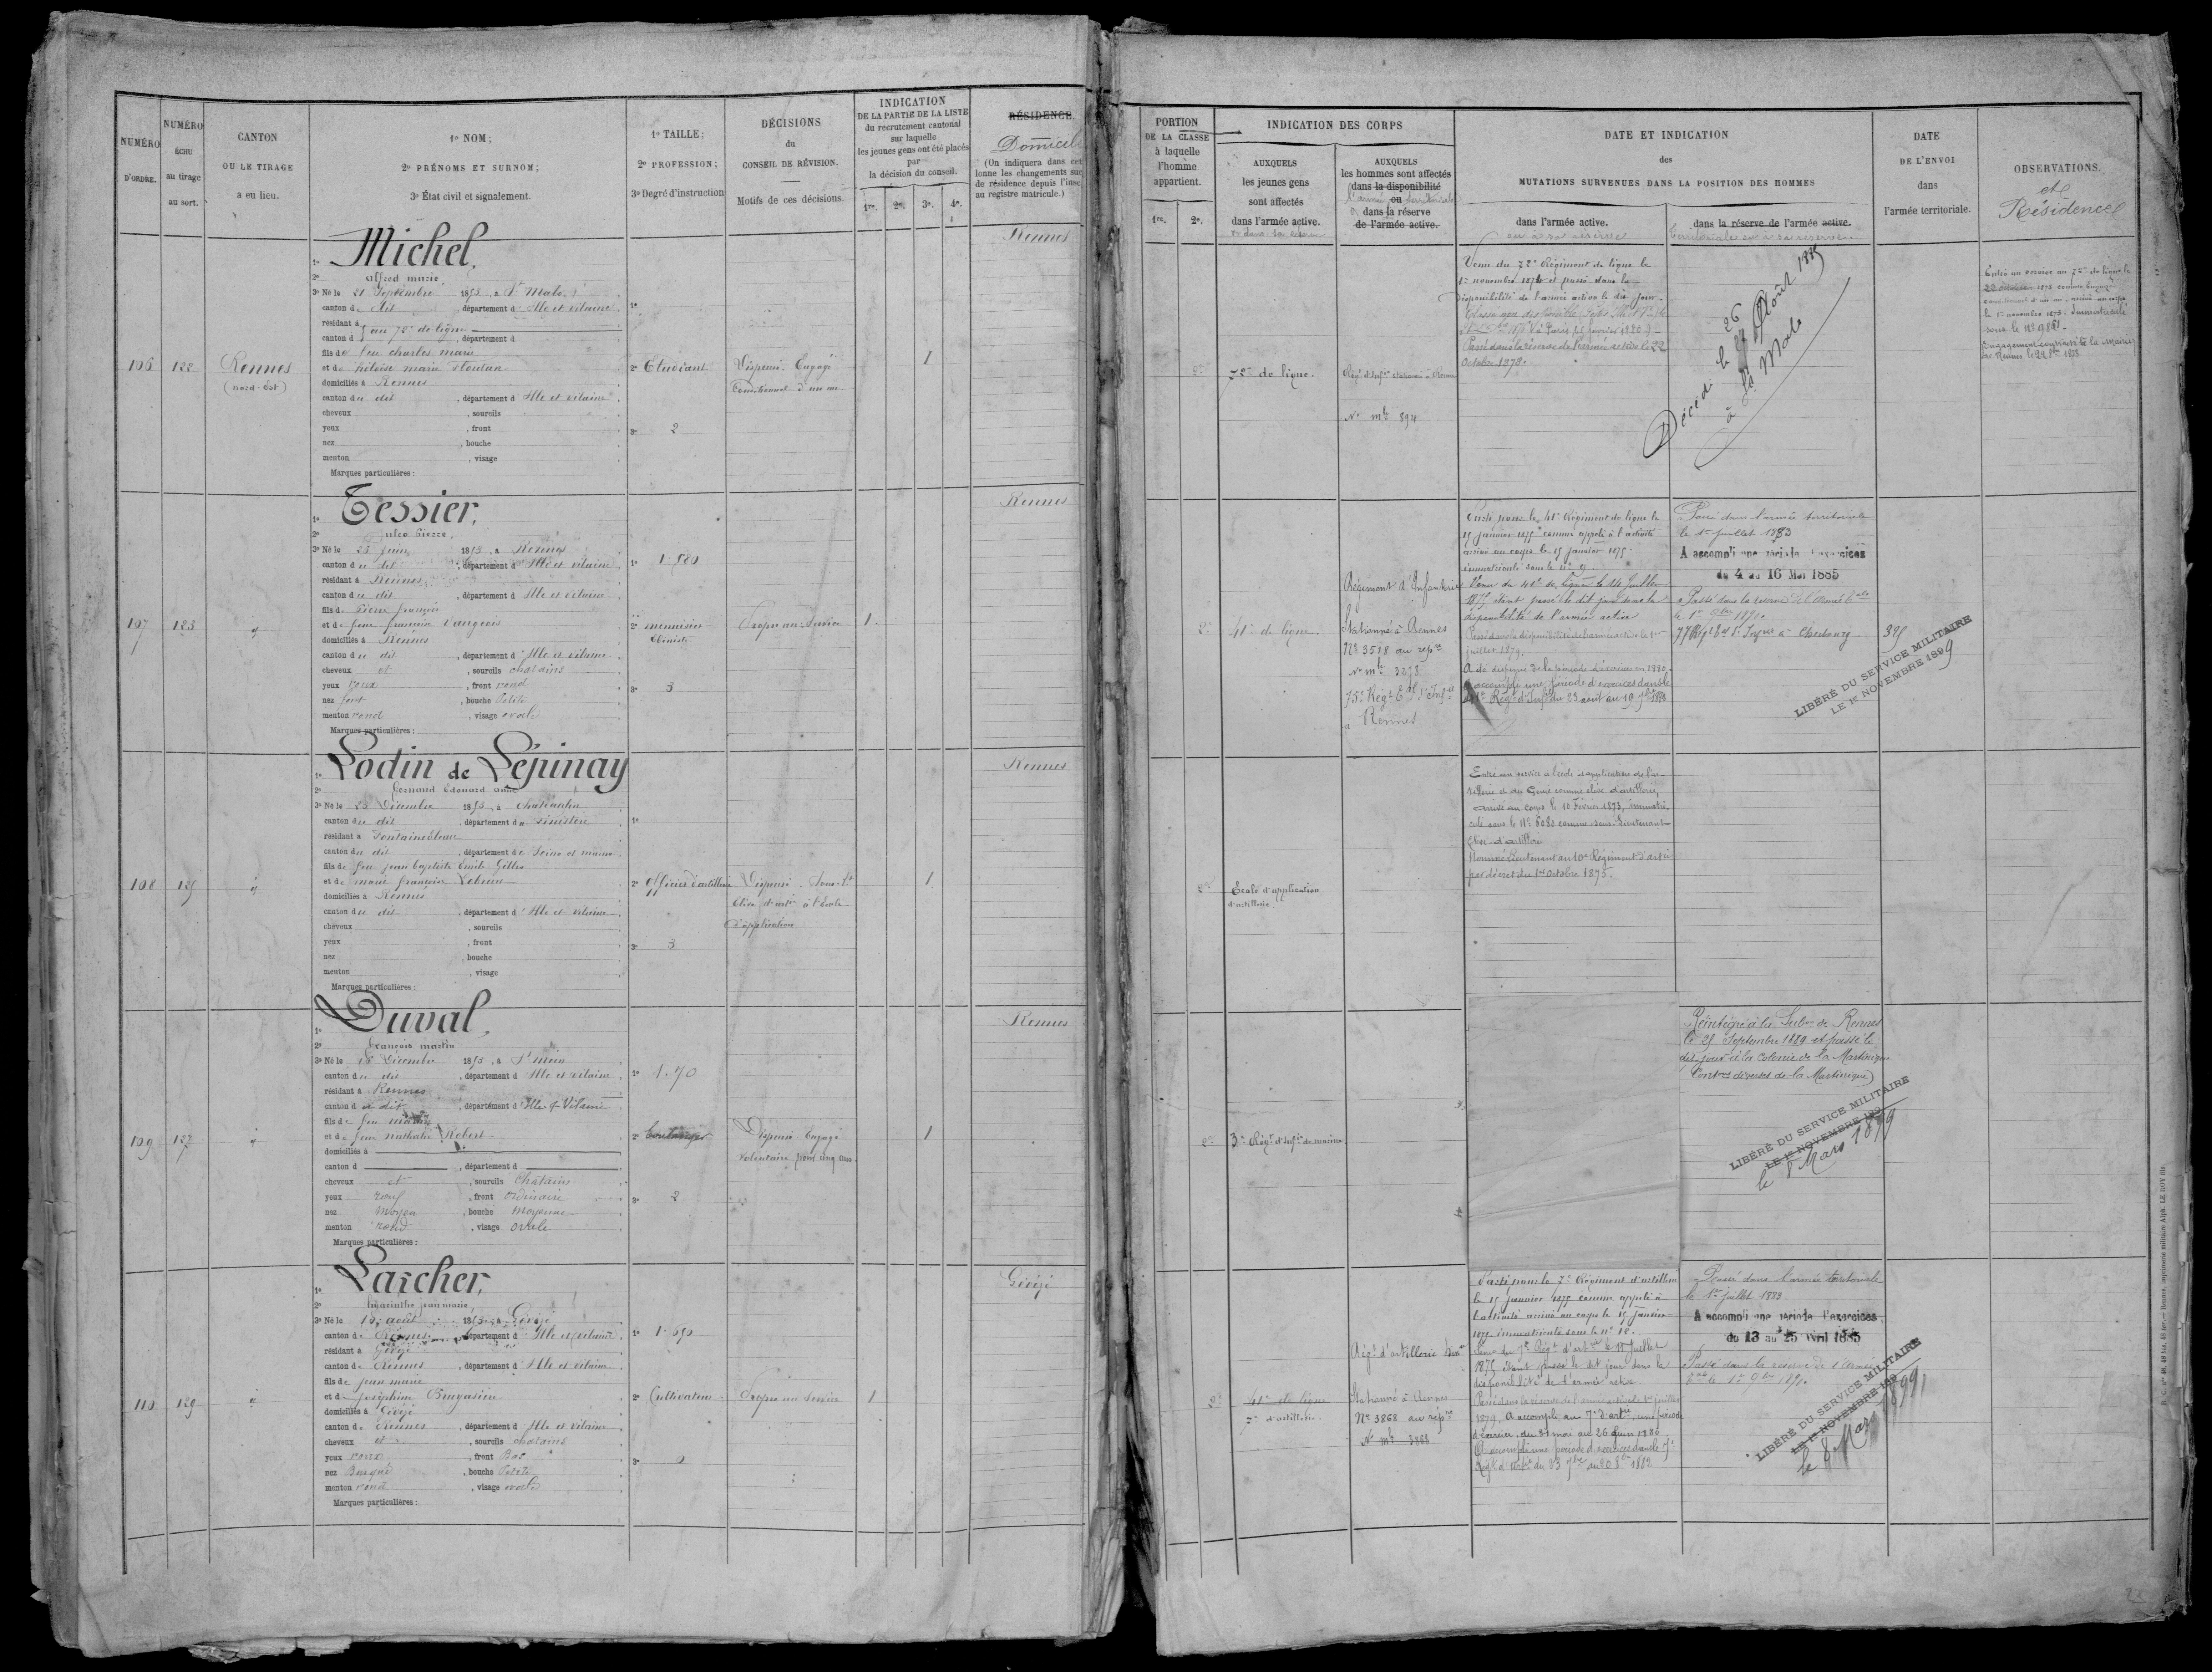 NUMÉRO D'ORDRE.
NUMÉRO ÉCHU au tirage au sort.
CANTON OU LE TIRAGE a eu lieu.
1º NOM;
2º PRÉNOMS ET SURNOM;
3º État civil et signalement.
1º TAILLE;
2º PROFESSION;
3º Degré d'instruction
DÉCISIONS du CONSEIL DE RÉVISION.
Motifs de ces décisions.
INDICATION DE LA PARTIE DE LA LISTE du recrutement cantonal sur laquelle les jeunes gens ont été placés par la décision du conseil.
1re. 2e. 3e. 4e.
RÉSIDENCE
Domicile
(On indiquera dans cet
lonne les changements suc
de résidence depuis l'insc
au registre matricule.)
PORTION DE LA CLASSE à laquelle l'homme appartient.
1re. 2e.
INDICATION DES CORPS
AUXQUELS les jeunes gens sont affectés dans l'armée active.
et dans sa réserve
AUXQUELS les hommes sont affectés dans la disponibilité ou dans la réserve de l'armée active.
l'armée territoriale
DATE ET INDICATION des MUTATIONS SURVENUES DANS LA POSITION DES HOMMES
dans l'armée active.
ou à sa réserve
dans la réserve de l'armée active.
territoriale ou à sa réserve.
DATE DE L'ENVOI dans l'armée territoriale.
OBSERVATIONS.
et Résidences
106
122
Rennes
(nord-Est)
1º Michel,
2º alfred marie,
3º Né le 21 Septembre 1853, à St Malo
canton du dit, département d'Ille et vilaine
résidant à
canton d
au 72e de ligne
département d
fils de feu charles marie
et de héloïse marie
domiciliés à Rennes
canton du dit, département d'Ille et vilaine
cheveux, sourcils
yeux, front
nez, bouche
menton, visage
Marques particulières :
1º
2º Etudiant
3º 2
Dispensé. Engagé
Conditionnel d'un an
1
Rennes
2e
72e de ligne.
Régt d'Infie stationné à Rennes
No mle 894
Venu du 72e Régiment de ligne le
1er novembre 1874 et passé dans la
disponibilité de l'armée active le dit jour.
Passé dans la réserve de l'armée active le 22
Octobre 1878.
Décédé le 26 Août 1885
à St Malo
Entré au service au 72e de ligne le
22 octobre 1873 comme Engagé
conditionnel d'un an, arrivé au corps
le 1er novembre 1873. Immatriculé
sous le No 9861.
Engagement contracté à la Mairie
de Rennes le 22 8bre 1873
107
123
d
1º Tessier,
2º jules Pierre,
3º Né le 23 juin 1853, à Rennes
canton du dit, département d'Ille et vilaine
résidant à Rennes
canton du dit, département d'Ille et vilaine
fils de Pierre françois
et de feue françoise Vaugeois
domiciliés à Rennes
canton du dit, département d'Ille et vilaine
cheveux et, sourcils chatains
yeux roux, front rond
nez fort, bouche Petite
menton rond, visage ovale
Marques particulières :
1º 1.580
2º menuisier
Ebéniste
3º 3
Propre au Service
1
Rennes
2e
41e de ligne.
Régiment d'Infanterie
Stationné à Rennes
No 3518 au repre
No mle 3218
75e Régt Eal d'Infie
à Rennes
Parti pour le 41e Régiment de ligne le
15 janvier 1875 comme appelé à l'activité
arrivé au corps le 15 janvier 1875.
immatriculé sous le No 9.
Venu du 41e de ligne le 14 Juillet
1875 étant passé le dit jour dans la
disponibilité de l'armée active
juillet 1879.
A accompli une période d'exercices dans le
41e Régt d'Infie du 23 août au 19 7bre 1880
Passé dans l'armée territoriale
le 1er Juillet 1883
A accompli une période d'exercices
du 4 au 16 Mai 1885
Passé dans la réserve de l'armée tale
le 1er 9bre 1890.
77e Régt Eal d'Infie à Cherbourg.
325
LIBÉRÉ DU SERVICE MILITAIRE
LE 1er NOVEMBRE 1899
108
125
d
1º Lodin de Lépinay
2º fernand Edouard anne
3º Né le 23 Décembre 1853, à chateaulin
canton du dit, département du finistère
résidant à Fontainebleau
canton du dit, département de Seine et marne
fils de feu jean baptiste Emile Gilles
et de marie françoise Lebreton
domiciliés à Rennes
canton du dit, département d'Ille et vilaine
cheveux, sourcils
yeux, front
nez, bouche
menton, visage
Marques particulières :
1º
2º Officier d'artillerie
3º 3
Dispensé. Sous-Lt
Elève d'artie à l'école
d'application
1
Rennes
2e
Ecole d'application
d'artillerie.
Entré au service à l'école d'application de l'ar-
tillerie et du Génie comme élève d'artillerie,
arrivé au corps le 10 Février 1873, immatri-
culé sous le No 6020 comme sous-lieutenant
élève d'artillerie
Nommé Lieutenant au 10e Régiment d'artie
par décret du 1er octobre 1875.
109
127
d
1º Duval,
2º françois martin
3º Né le 18 Décembre 1853, à St méen
canton du dit, département d'Ille et vilaine
résidant à Rennes
canton du dit, département d'Ille & Vilaine
fils de feu mathurin
et de feue nathalie Robert
domiciliés à
canton d, département d
cheveux et, sourcils Chatains
yeux roux, front Ordinaire
nez Moyen, bouche Moyenne
menton rond, visage ovale
Marques particulières :
1º 1.70
2º Boulanger
3º 2
Dispensé. Engagé
volontaire pour cinq ans.
1
Rennes
2e
3e Régt d'Infie de marine
Réintégré à la Subon de Rennes
le 25 Septembre 1889 et passé le
dit jour à la Colonie de la Martinique
LIBÉRÉ DU SERVICE MILITAIRE
LE 1er NOVEMBRE 189
le 8 Mars 1899
110
129
d
1º Larcher,
2º hyacinthe jean marie,
3º Né le 15 août 1853, à Gévezé
canton de Rennes, département d'Ille et vilaine
résidant à Gévezé
canton de Rennes, département d'Ille et vilaine
fils de jean marie
et de joséphine
domiciliés à Gévezé
canton de Rennes, département d'Ille et vilaine
cheveux et, sourcils chatains
yeux roux, front Bas
nez Busqué, bouche Petite
menton rond, visage ovale
Marques particulières :
1º 1.650
2º Cultivateur
3º 0
Propre au Service
1
Gévezé
2e
41e de ligne
7e d'artillerie.
Régt d'artillerie
Stationné à Rennes
No 3868 au repre
No mle 3868
Parti pour le 7e Régiment d'artillerie
le 15 janvier 1875 comme appelé à
l'activité arrivé au corps le 15 janvier
1875. immatriculé sous le No 12.
1875 étant passé le dit jour dans la
disponibilité de l'armée active.
Passé dans la réserve de l'armée active le 1er juillet
1879. A accompli au 7e d'artie, une période
d'exercices, du 31 mai au 26 juin 1880
A accompli une période d'exercices dans le 7e
Régt d'artie du 23 7bre au 20 8bre 1882
Passé dans l'armée territoriale
le 1er juillet 1883
A accompli une période d'exercices
du 13 au 25 Avril 1885
Passé dans la réserve de l'armée
tale le 1er 9bre 1890.
LIBÉRÉ DU SERVICE MILITAIRE
LE 1er NOVEMBRE 189
le 8 Mars 1899